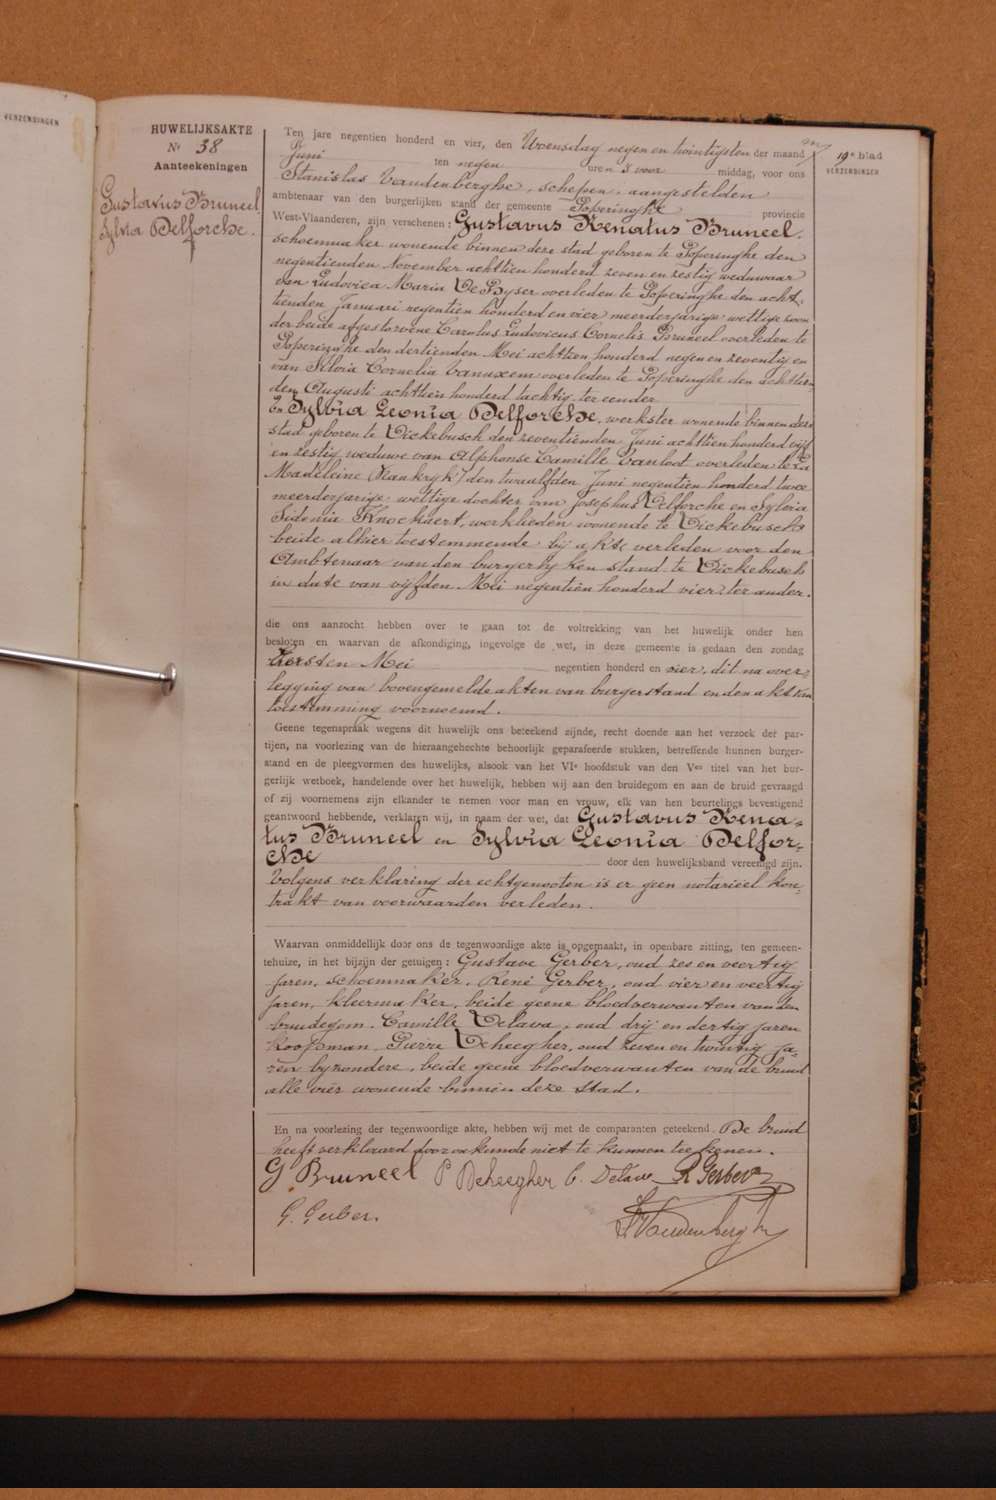 VERZENDINGEN
HUWELIJKSAKTE
Nr 38
Aanteekeningen
Gustavus Bruneel
Sylvia Delforche.
19e blad
VERZENDINGEN
Ten jare negentien honderd en vier, den Woensdag negen en twintigsten der maand
Juni ten negen uren 's voor middag, voor ons
Stanislas Vandenberghe, schepen, aangestelden
ambtenaar van den burgerlijken stand der gemeente Poperinghe provincie
West-Vlaanderen, zijn verschenen: Gustavus Renatus Bruneel.
schoenmaker wonende binnen deze stad geboren te Poperinghe den
negentienden November achttien honderd zeven en zestig weduwaar
van Ludovica Maria De Byser overleden te Poperinghe den acht-
tienden Januari negentien honderd en vier meerderjarige wettige zoon
der beide afgestorvene Carolus Ludovicus Cornelis Bruneel overleden te
Poperinghe den dertienden Mei achttien honderd negen en zeventig en
van Sylvia Cornelia Vanuxem overleden te Poperinghe den achttien-
den Augusti achttien honderd tachtig, ter eender
En Sylvia Leonia Delforche, werkster wonende binnen deze
stad geboren te Dickebusch den zeventienden Juni achttien honderd vijf
en zestig, weduwe van Alphonse Camille Vanloot overleden te La
Madeleine (Frankryk) den twaalfden Juni negentien honderd twee
meerderjarige wettige dochter van Josephus Delforche en Sylvia
Sidonie Knockaert, werklieden wonende te Dickebusch
beide alhier toestemmende bij akte verleden voor den
Ambtenaar van den burgerlyken stand te Dickebusch
in date van vijfden Mei negentien honderd vier, ter ander.
die ons aanzocht hebben over te gaan tot de voltrekking van het huwelijk onder hen
besloten en waarvan de afkondiging, ingevolge de wet, in deze gemeente is gedaan den zondag
eersten Mei negentien honderd en vier, dit na over-
legging van bovengemelde akten van burgerstand en den akt van
toestemming voornoemd.
Geene tegenspraak wegens dit huwelijk ons beteekend zijnde, recht doende aan het verzoek der par-
tijen, na voorlezing van de hieraangehechte behoorlijk geparafeerde stukken, betreffende hunnen burger-
stand en de pleegvormen des huwelijks, alsook van het VIe hoofdstuk van den Ven titel van het bur-
gerlijk wetboek, handelende over het huwelijk, hebben wij aan den bruidegom en aan de bruid gevraagd
of zij voornemens zijn elkander te nemen voor man en vrouw, elk van hen beurtelings bevestigend
geantwoord hebbende, verklaren wij, in naam der wet, dat Gustavus Rena-
tus Bruneel en Sylvia Leonia Delfor-
che door den huwelijksband vereenigd zijn.
Volgens verklaring der echtgenooten is er geen notarieel kon-
trakt van voorwaarden verleden.
Waarvan onmiddellijk door ons de tegenwoordige akte is opgemaakt, in openbare zitting, ten gemeen-
tehuize, in het bijzijn der getuigen: Gustave Gerber, oud zes en veertig
jaren, schoenmaker, René Gerber, oud vier en veertig
jaren, kleermaker, beide geene bloedverwanten van den
bruidegom. Camille Delava, oud drij en dertig jaren
koopman Pierre Deheegher, oud zeven en twintig ja-
ren byzondere, beide geene bloedverwanten van de bruid
alle vier wonende binnen deze stad.
En na voorlezing der tegenwoordige akte, hebben wij met de comparanten geteekend. De bruid
heeft verklaard door onkunde niet te kunnen teekenen.
G Bruneel P Deheegher C. Delava R Gerber
G. Gerber.
S Vandenberghe